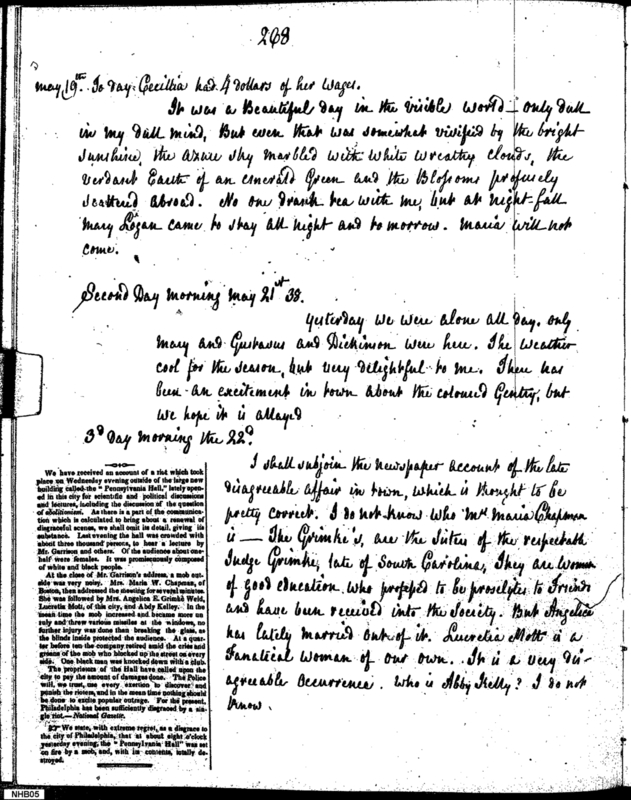 268
May 19th. To Day Cecillia had 4 dollars of her wages.
It was a Beautiful day in the visible world - only dull
in my dull mind, But even that was somewhat vivified by the bright
sunshine, the azure sky marbled with white wreathy clouds, the
Verdant Earth of an emerald Green and the Blossoms profusely
scattered abroad. No one drank tea with me, but at night-fall
Mary Logan came to stay all night and to morrow. Maria will not
come.
Second Day morning May 21st 38.
Yesterday we were alone all day. only
Mary and Gustavus and Dickinson were here. The weather
cool for the season, but very delightful to me. There has
been an excitement in town about the coloured Gentry, but
we hope it is allayed
3d Day morning the 22d
We have received an account of a riot which took
place on Wednesday evening outside of the large new
building called the "Pennsylvania Hall," lately open-
ed in this city for scientific and political discussions
and lectures, including the discussion of the question
of abolitionism. As there is a part of the communica-
tion which is calculated to bring about a renewal of
disgraceful scenes, we shall omit its detail, giving its
substance. Last evening the hall was crowded with
about three thousand persons, to hear a lecture by
Mr. Garrison and others. Of the audience about one-
half were females. It was promiscuously composed
of white and black people.
At the close of Mr. Garrison's address, a mob out-
side was very noisy. Mrs. Maria W. Chapman, of
Boston, then addressed the meeting for several minutes.
She was followed by Mrs. Angelina E. Grimké Weld,
Lucretia Mott, of this city, and Abby Kelley. In the
mean time the mob increased and became more un-
ruly and threw various missiles at the windows, no
further injury was done than breaking the glass, as
the blinds inside protected the audience. At a quar-
ter before ten the company retired amid the cries and
groans of the mob who blocked up the street on every
side. One black man was knocked down with a club.
The proprietors of the Hall have called upon the
city to pay the amount of damages done. The Police
will, we trust, use every exertion to discover and
punish the rioters, and in the mean time nothing should
be done to excite popular outrage. For the present,
Philadelphia has been sufficiently disgraced by a sin-
gle riot.—National Gazette.
☞ We state, with extreme regret, as a disgrace to
the city of Philadelphia, that at about eight o'clock
yesterday evening, the "Pennsylvania Hall" was set
on fire by a mob, and, with its contents, totally de-
stroyed.
I shall subjoin the newspaper account of the late
disagreeable affair in town, which is thought to be
pretty correct. I do not know who Mrs Maria Chapman
is — The Grimke's, are the Sisters of the respectable
Judge Grimke, late of South Carolina, They are women
of good education who professed to be proselytes to Friends
and have been received into the Society. But Angelica
has lately married out of it. Lucretia Mott is a
Fanatical Woman of our own. It is a very dis-
agreeable Occurrence. Who is Abby Kelly? I do not
know.
NHB05